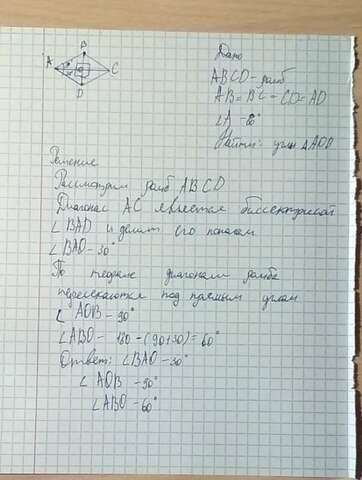 B
A
C
D
Дано
ABCD - ромб
AB = BC - CD = AD
∠A - 60°
Найти: углы ΔAOD
Решение
Рассмотрим ромб ABCD
Диагонал AC является биссектрисой
∠BAD и делит его попалам
∠BAO - 30°
По теореме диагонали ромба
пересекаются под прямым углам
∠AOB - 90°
∠ABO - 180 - (90+30) = 60°
Ответ: ∠BAO - 30°
∠AOB - 90°
∠ABO - 60°